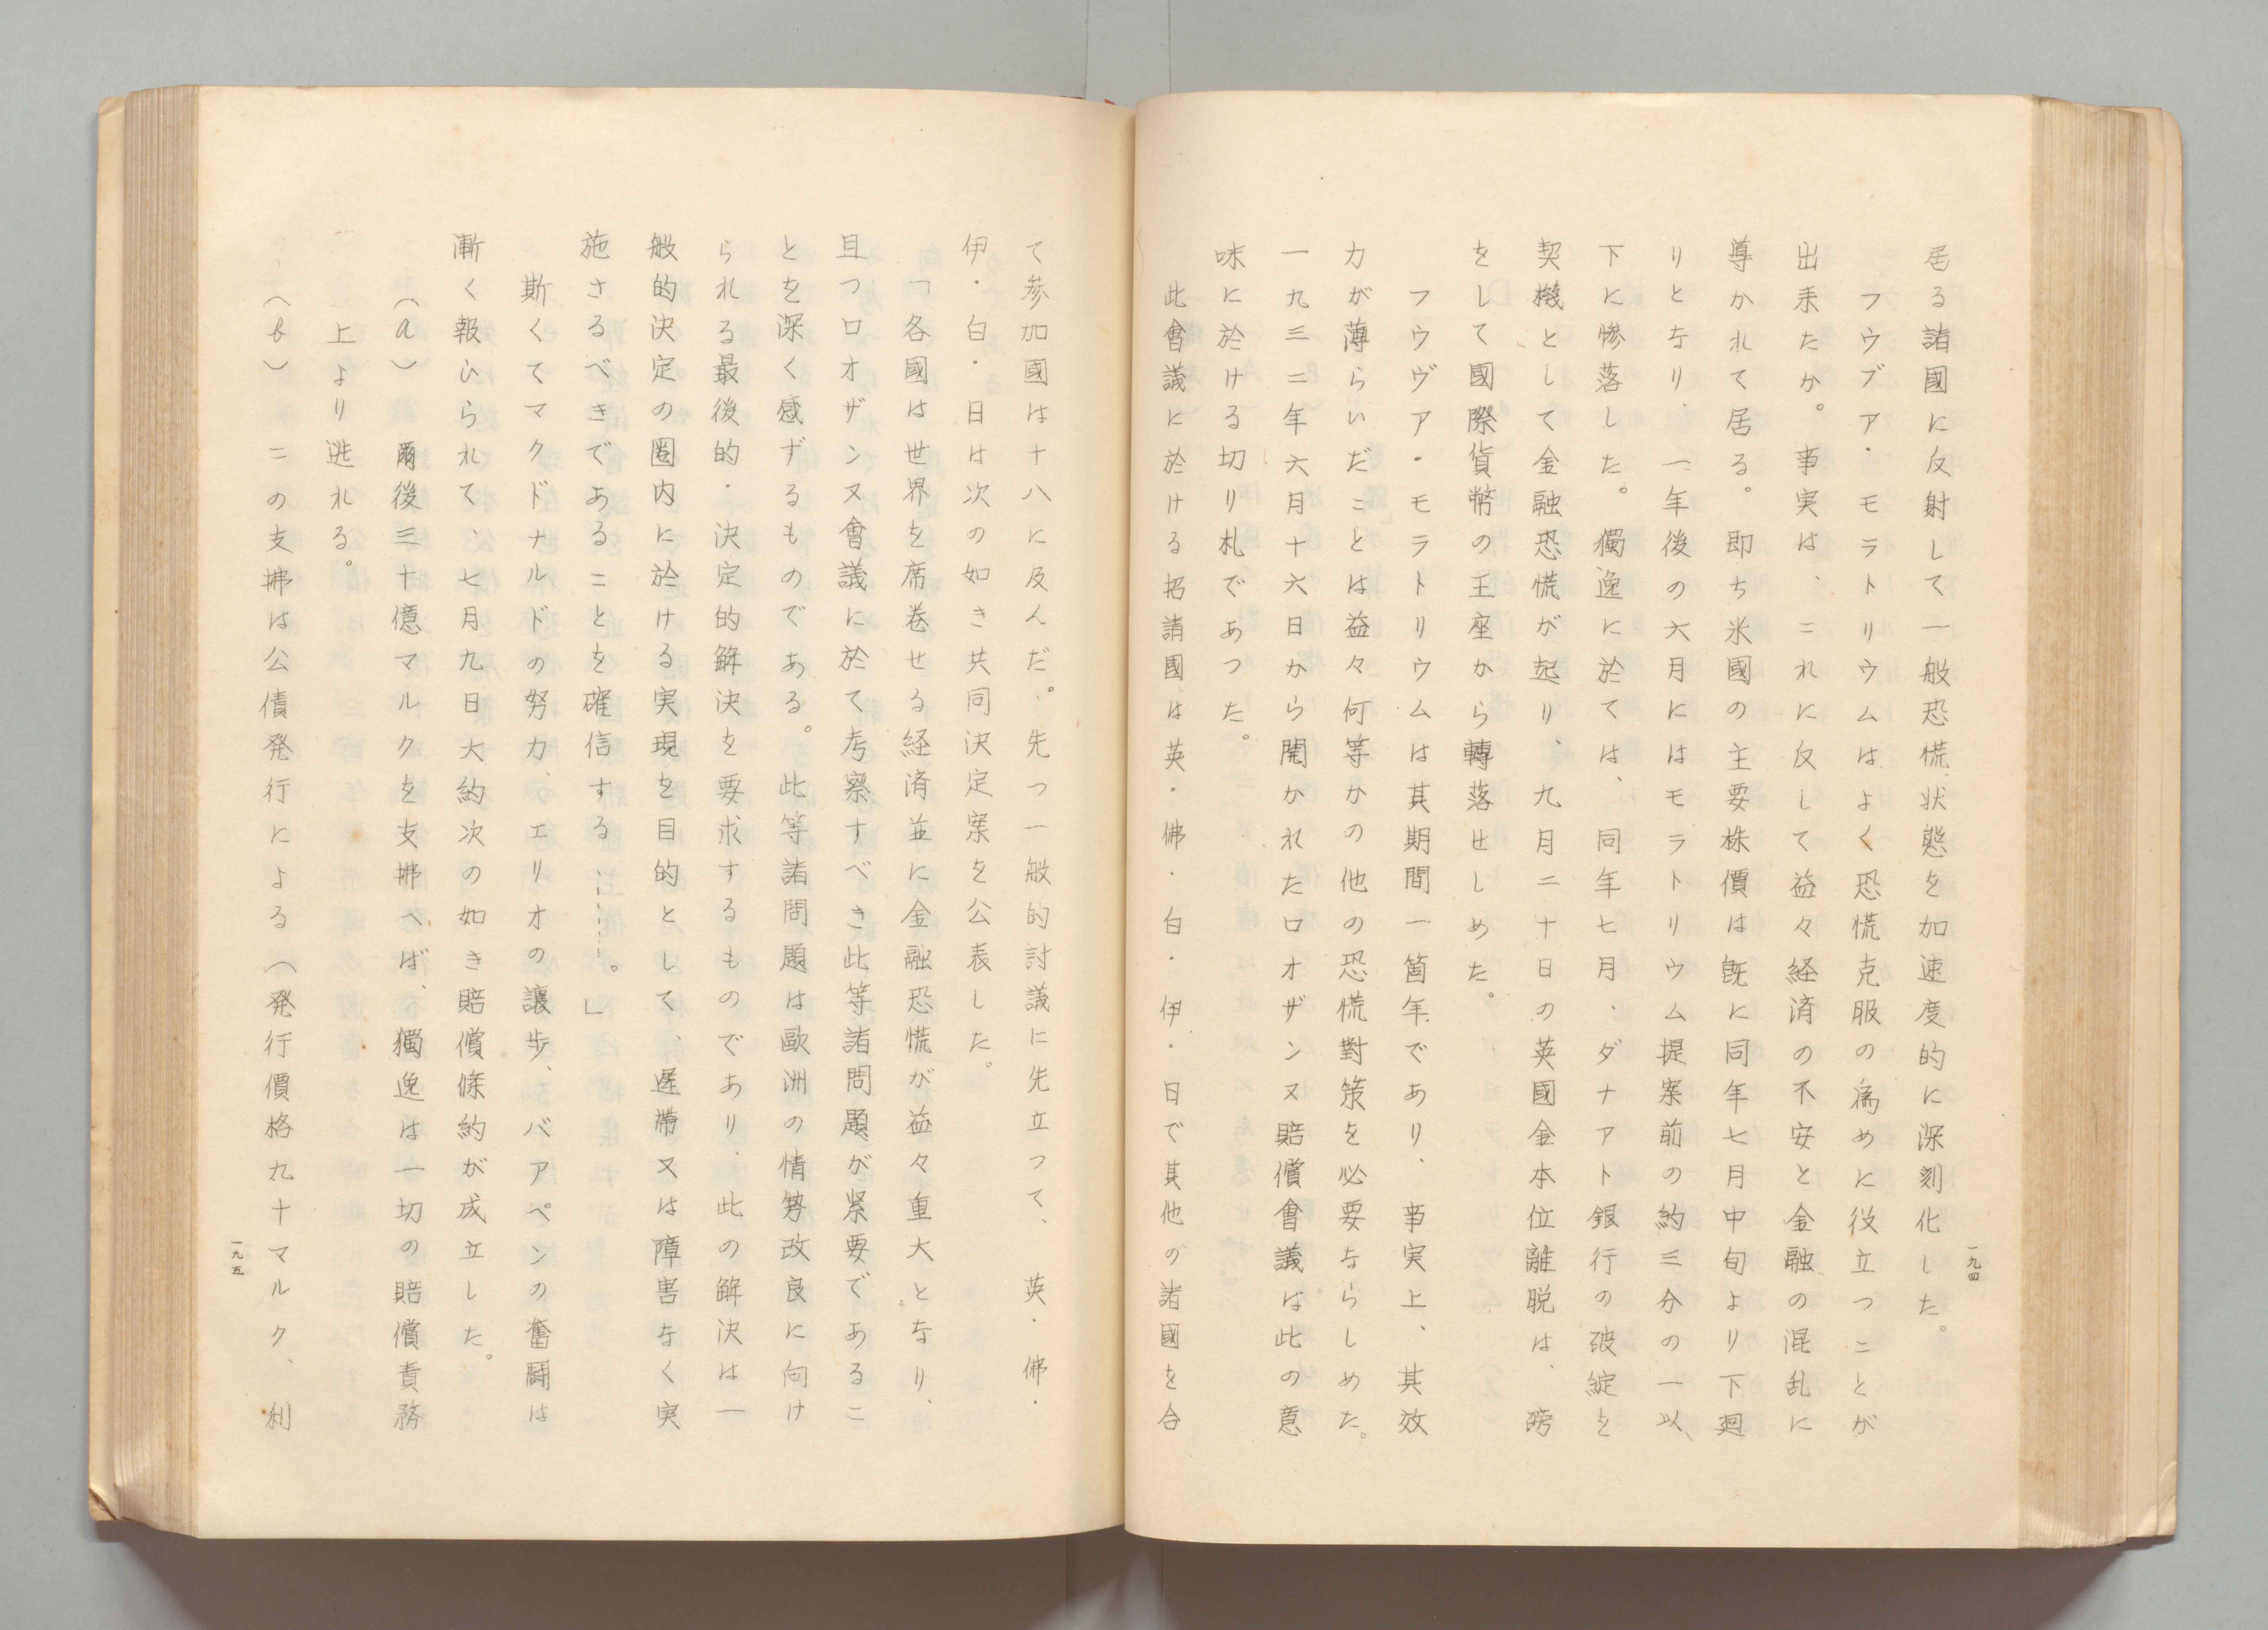 居る諸國に反射して一般恐慌状態を加速度的に深刻化した。
フウブア・モラトリウムはよく恐慌克服の為めに役立つことが
出来たか。事実は、これに反して益々経済の不安と金融の混乱に
導かれて居る。即ち米國の主要株價は既に同年七月中旬より下廻
りとなり、一年後の六月にはモラトリウム提案前の約三分の一以
下に惨落した。獨逸に於ては、同年七月、ダナアト銀行の破綻を
契機として金融恐慌が起り、九月二十日の英國金本位離脱は、磅
をして國際貨幣の王座から轉落せしめた。
フウヴア・モラトリウムは其期間一箇年であり、事実上、其效
力が薄らいだことは益々何等かの他の恐慌對策を必要ならしめた。
一九三二年六月十六日から開かれたロオザンヌ賠償會議は此の意
味に於ける切り札であつた。
此會議に於ける招請國は英・佛・白・伊・日で其他の諸國を合
一九四
て参加國は十八に及んだ。先つ一般的討議に先立つて、英・佛・
伊・白・日は次の如き共同決定案を公表した。
「各國は世界を席巻せる経済並に金融恐慌が益々重大となり、
且つロオザンヌ會議に於て考察すべき此等諸問題が緊要であるこ
とを深く感ずるものである。此等諸問題は歐洲の情勢改良に向け
られる最後的・決定的解決を要求するものであり、此の解決は一
般的決定の圏内に於ける実現を目的として、遅滞又は障害なく実
施さるべきであることを確信する………。」
斯くてマクドナルドの努力、エリオの讓歩、バアペンの奮闘は
漸く報ひられて、七月九日大約次の如き賠償條約が成立した。
（a）爾後三十億マルクを支拂へば、獨逸は一切の賠償責務
上より逃れる。
（b）この支拂は公債発行による（発行價格九十マルク、利
一九五